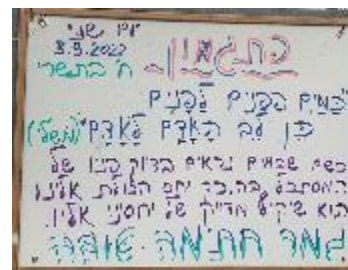 יום שני
3.9.2022
ח' בתשרי
פתגמון
"כמים הפנים לפנים
כן לב האדם לאדם" (משלי)
כשם שבמים נראים בדיוק פניו של
המסתכל בה, כך יחס הזולת אלינו
הוא שיקוף מדויק של יחסינו אליו.
גמר חתימה טובה